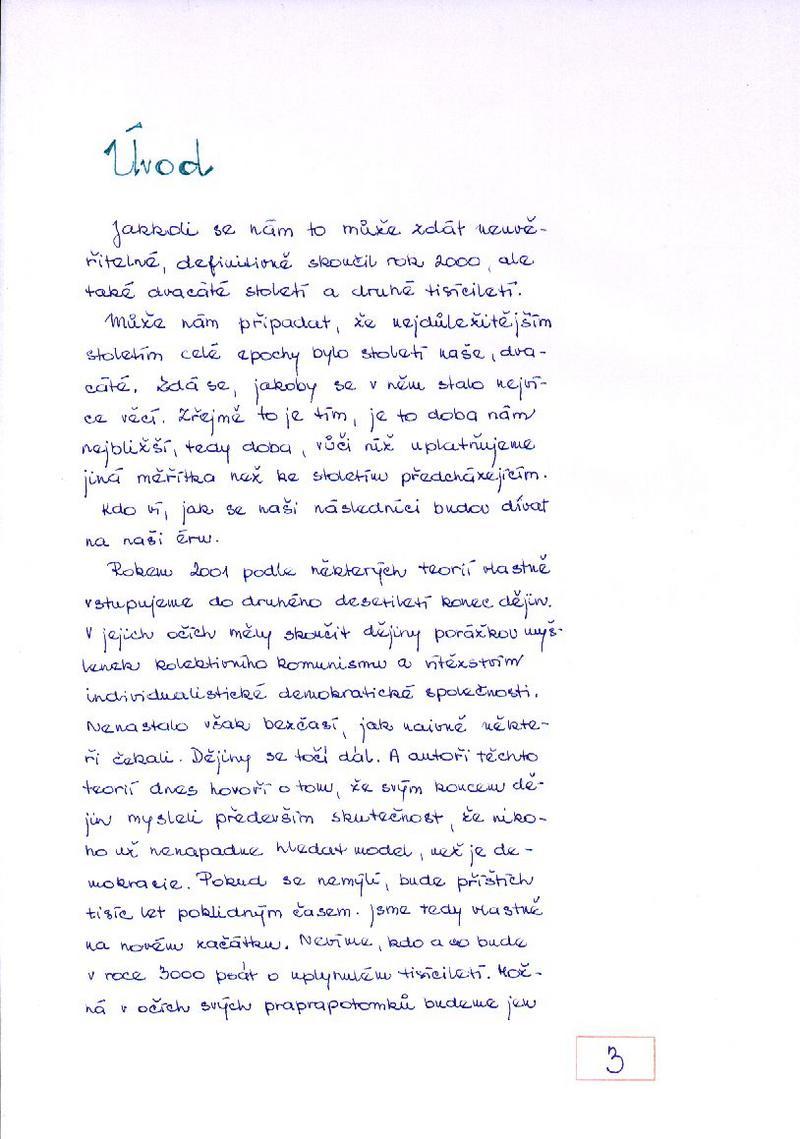 Úvod
Jakkoli se nám to může zdát neuvě-
řitelné, definitivně skončil rok 2000, ale
také dvacáté století a druhé tisíciletí.
Může nám připadat, že nejdůležitějším
stoletím celé epochy bylo století naše, dva-
cáté. Zdá se, jakoby se v něm stalo nejví-
ce věcí. Zřejmě to je tím, je to doba nám
nejbližší, tedy doba, vůči níž uplatňujeme
jiná měřítka než ke stoletím předcházejícím.
Kdo ví, jak se naši následníci budou dívat
na naši éru.
Rokem 2001 podle některých teorií vlastně
vstupujeme do druhého desetiletí konec dějin.
V jejich očích měly skončit dějiny porážkou myš-
lenek kolektivního komunismu a vítězstvím
individualistické demokratické společnosti.
Nenastalo však bezčasí, jak naivně někte-
ří čekali. Dějiny se točí dál. A autoři těchto
teorií dnes hovoří o tom, že svým koncem dě-
jin mysleli především skutečnost, že niko-
ho už nenapadne hledat model, než je de-
mokracie. Pokud se nemýlí, bude příštích
tisíc let poklidným časem. Jsme tedy vlastně
na novém začátku. Nevíme, kdo a co bude
v roce 3000 psát o uplynulém tisíciletí. Mož-
ná v očích svých praprapotomků budeme jen
3